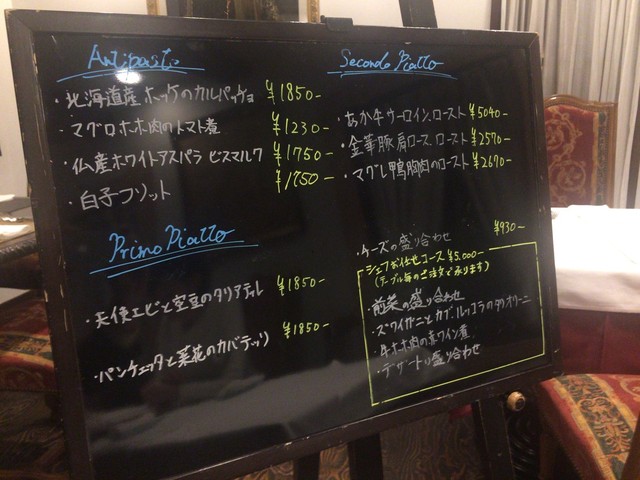 Antipasto
・北海道産ホッケのカルパッチョ ¥1850-
・マグロホホ肉のトマト煮 ¥1230-
・仏産ホワイトアスパラ ビスマルク ¥1750-
・白子フリット ¥1750-
Primo Piatto
・天使エビと空豆のタリアテレ ¥1850-
・パンチェッタと菜花のカバテッリ ¥1850-
Secondo Piatto
・あか牛サーロイン、ロースト ¥5040-
・金華豚肩ロース、ロースト ¥2570-
・マグレ鴨胸肉のロースト ¥2670-
・チーズの盛り合わせ ¥930-
シェフお任せコース ¥5.000-
(テーブル毎のご注文で承ります)
前菜の盛り合わせ
・ズワイガニとカブ
・牛ホホ肉の赤ワイン煮
・デザート盛り合わせ